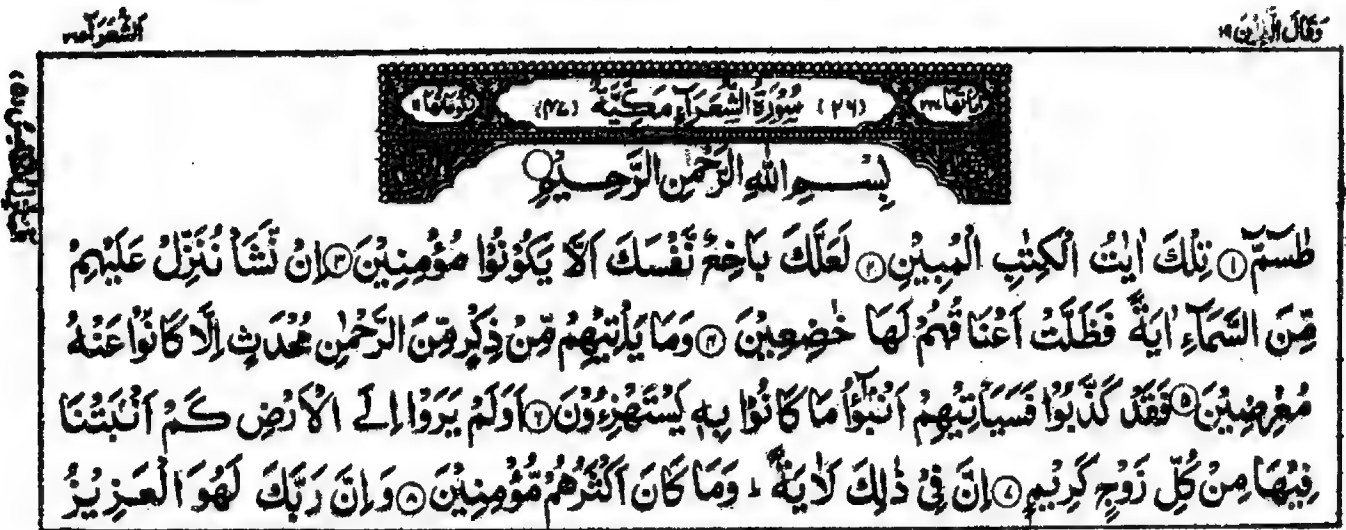 وَقَالَ الَّذِيْنَ ١٩
الشُّعَرَآء ٢٦
اٰيَاتُهَا ٢٢٧
(٢٦) سُوْرَةُ الشُّعَرَآءِ مَكِّيَّةٌ (٤٧)
رُكُوْعَاتُهَا ١١
بِسْمِ اللّٰهِ الرَّحْمٰنِ الرَّحِيْمِ
طٰسٓمّٓ ① تِلْكَ اٰيٰتُ الْكِتٰبِ الْمُبِيْنِ ② لَعَلَّكَ بَاخِعٌ نَّفْسَكَ اَلَّا يَكُوْنُوْا مُؤْمِنِيْنَ ③ اِنْ نَّشَاْ نُنَزِّلْ عَلَيْهِمْ
مِّنَ السَّمَآءِ اٰيَةً فَظَلَّتْ اَعْنَاقُهُمْ لَهَا خٰضِعِيْنَ ④ وَمَا يَاْتِيْهِمْ مِّنْ ذِكْرٍ مِّنَ الرَّحْمٰنِ مُحْدَثٍ اِلَّا كَانُوْا عَنْهُ
مُعْرِضِيْنَ ⑤ فَقَدْ كَذَّبُوْا فَسَيَاْتِيْهِمْ اَنْۢبٰٓؤُا مَا كَانُوْا بِهٖ يَسْتَهْزِءُوْنَ ⑥ اَوَلَمْ يَرَوْا اِلَى الْاَرْضِ كَمْ اَنْۢبَتْنَا
فِيْهَا مِنْ كُلِّ زَوْجٍ كَرِيْمٍ ⑦ اِنَّ فِيْ ذٰلِكَ لَاٰيَةً ؕ وَمَا كَانَ اَكْثَرُهُمْ مُّؤْمِنِيْنَ ⑧ وَاِنَّ رَبَّكَ لَهُوَ الْعَزِيْزُ